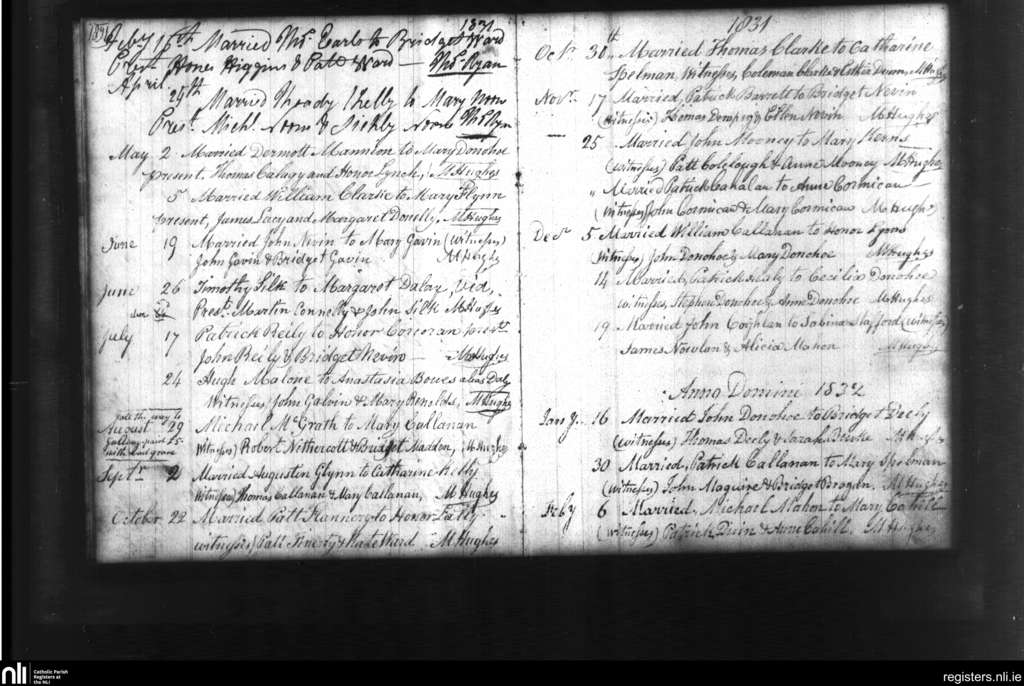 1831
Feby 15th Married Ths. Earls to Bridget Ward
Prest Honor Higgins & Patt Ward — Ths. Ryan
April
29th Married Thoady Kelly to Mary Noon
Prest. Michl. Noon & Noone Ths Ryn
May 2 Married Dermott Mannion to Mary Donohoe
present, Thomas and Honor Lynch, M Hughes
5 Married William Clarke to Mary Flynn
present, James Lacy and Margaret Donelly, M Hughes
June 19 Married John Nevin to Mary Gavin (witnesses)
John Gavin & Bridget Gavin M Hughs
June 26 Timothy Silk to Margaret Daly, Vid,
Prest. Martin Connelly & John Silk M Hughes
July 17 Patrick Reily to Honor Corcoran prest.
John Reily & Bridget Nevin — M Hughes
24 Hugh Malone to Anastasia Bowes alias Daly
Witnesses John Galvin & Mary Renolds, M Hughes
August 29 Michael Mc Grath to Mary Callanan
Witness) Robert Nethercott & Bridget Madden, M Hughes
Septr 2 Married Augustin Glynn to Catharine Kelly
Witness) Thomas Callanan & Mary Callanan, M Hughes
October 22 Married Patt Flannery to Honor
witnesses) Patt Finerty & Kate Ward - M Hughes
1831
Octr. 30th Married Thomas Clarke to Catharine
Spelman, Witnesses, Coleman Clarke & M Hughes
Novr. 17 Married, Patrick Barrett to Bridget Nevin
(Witnesses) Thomas Dempsey & Ellen Nevin M Hughes
— 25 Married John Mooney to Mary Kerns
(witnesses) Patt Colclough & Anne Mooney M Hughes
" Married Patrick Canalan to Anne Cormican —
(Witness) John Cormican & Mary Cormican M Hughes
Decr 5 Married William Callanan to Honor Lyons
Witnesses, John Donohoe & Mary Donohoe M Hughes
14 Married, Patrick Healy to Cecilia Donohoe
witnesses, Stephen Donohoe & Anne Donohoe M Hughes
19 Married John Coghlan to Sabina Stafford (witnesses
James Nowlan & Alicia Mahon M Hughes
Anno Domini 1832
Jany. 16 Married John Donohoe to Bridget Deely
(witnesses) Thomas Deely & Sarah Burke M Hughes
30 Married, Patrick Callanan to Mary Spelman
(Witnesses) John Maguire & Bridget Brogan. M Hughes
Feby 6 Married, Michael Mahon to Mary Cahill
(witnesses) Patrick & Anne Cahill. M Hughes
nli Catholic Parish
Registers at
the NLI
registers.nli.ie